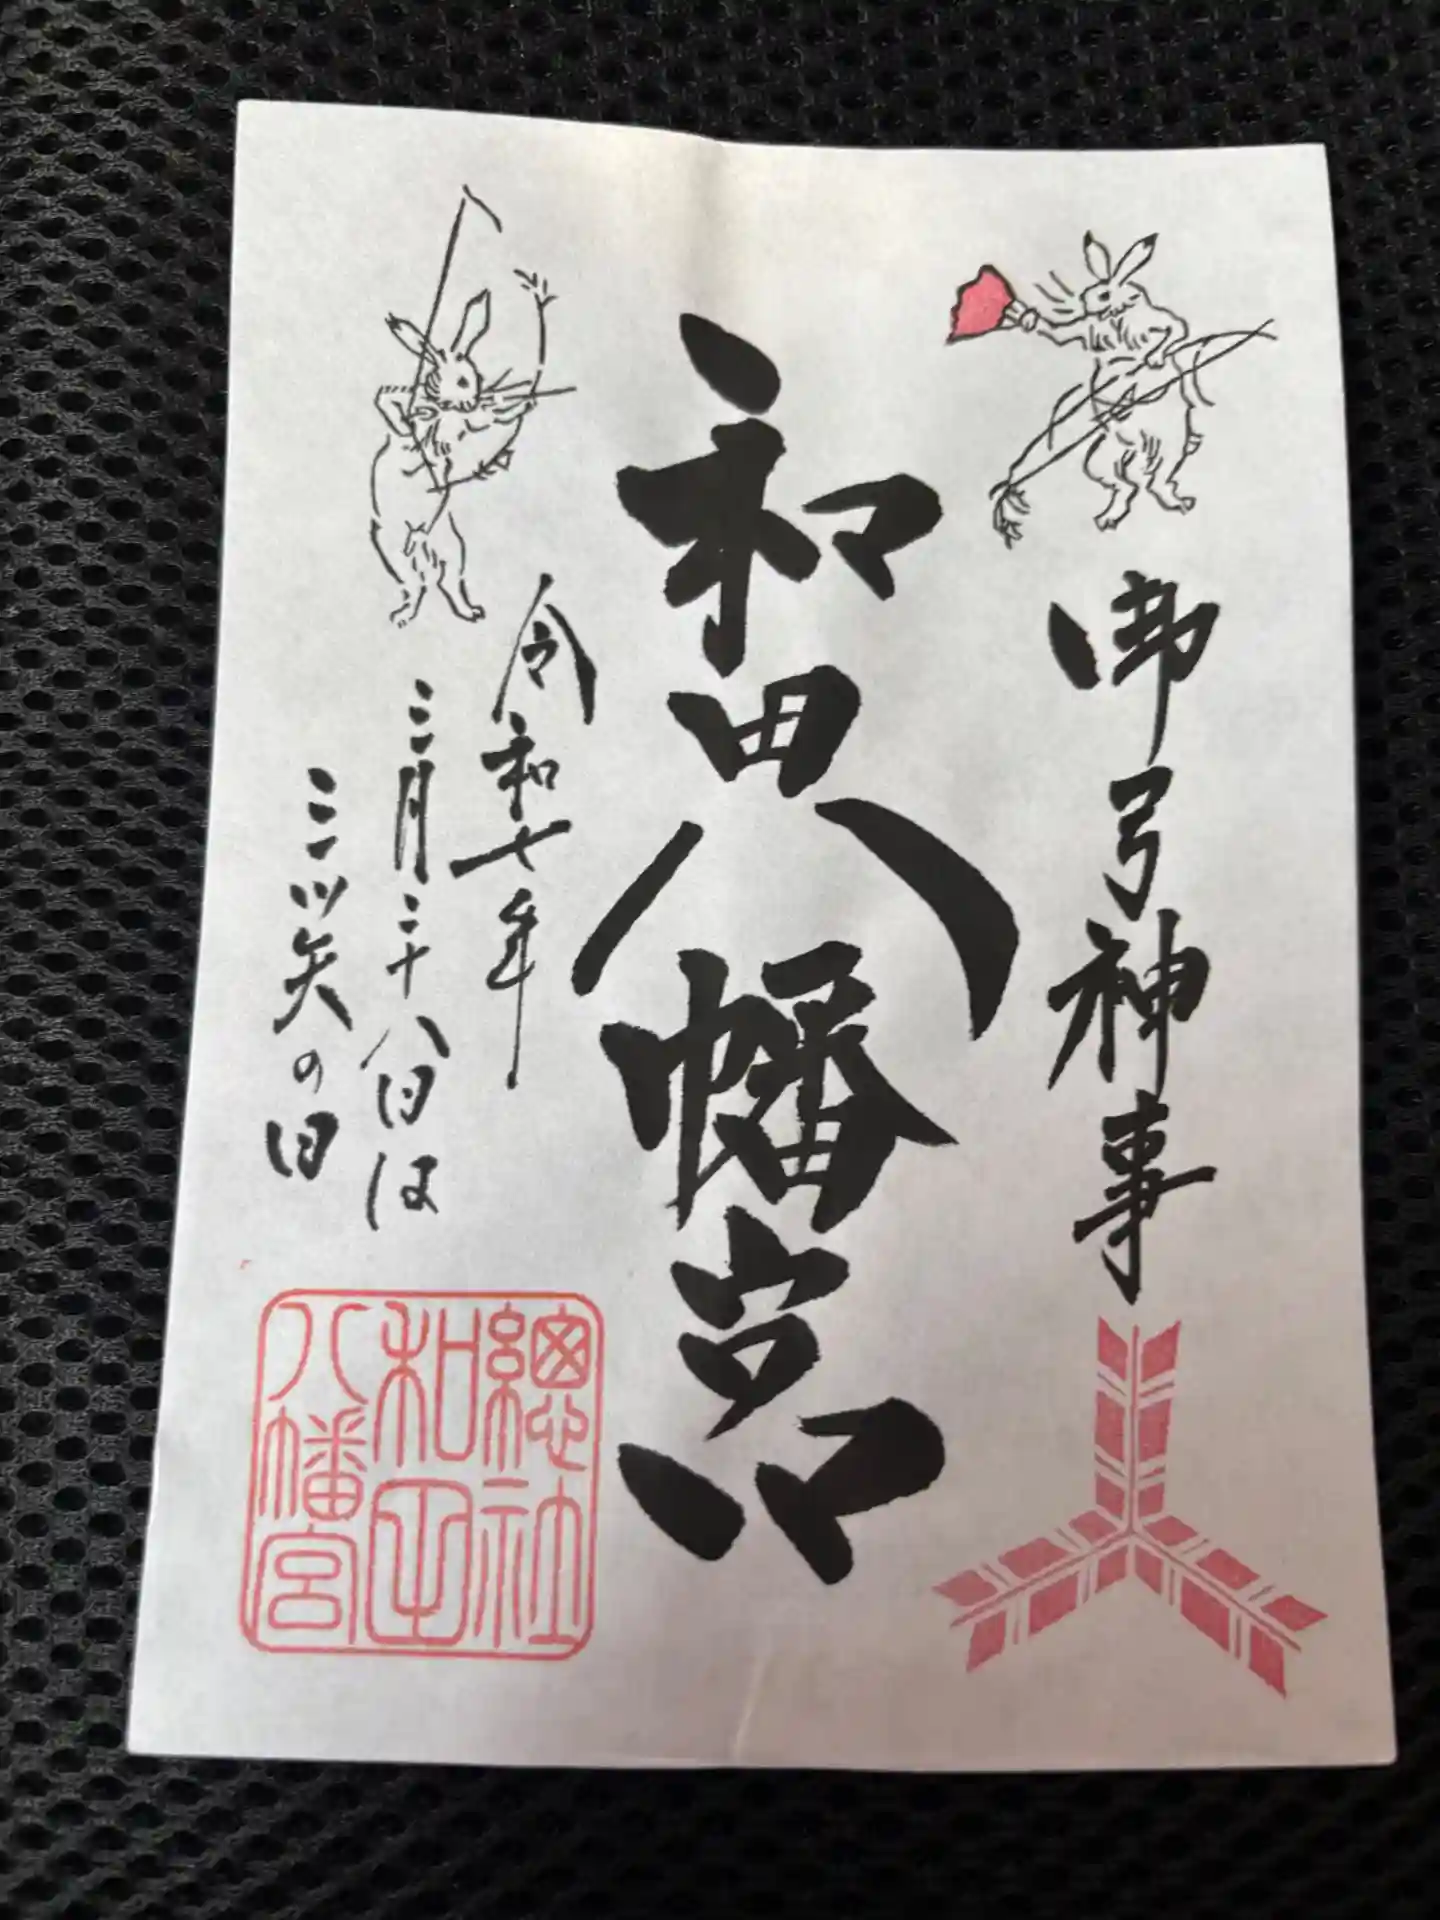 御弓神事
和田八幡宮
令和七年
三月二十八日は
三ツ矢の日
總社
和田
八幡宮